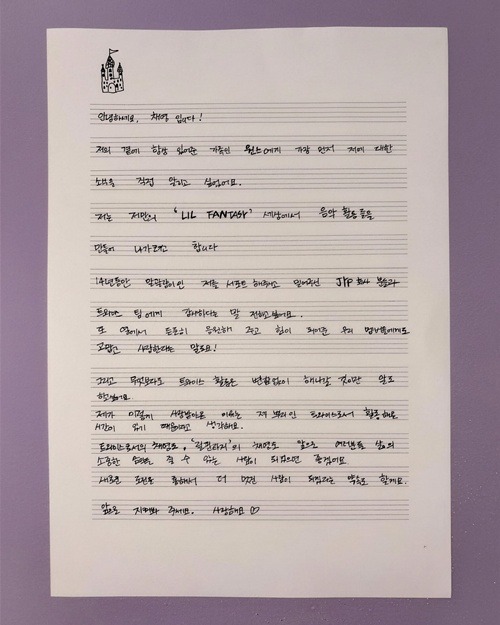 안녕하세요, 채영 입니다!
저의 곁에 항상 있어준 가족인 원스에게 가장 먼저 저에 대한
소식을 직접 알리고 싶었어요.
저는 저만의 'LIL FANTASY' 세상에서 음악 활동들을
만들어 나가려고 합니다
14년동안 말괄량이인 저를 서포트 해주시고 믿어주신 JYP 회사 분들과
트와이스 팀에게 감사하다는 말 전하고 싶어요.
또 옆에서 든든히 응원해 주고 힘이 되어준 우리 멤버들에게도
고맙고 사랑한다는 말도요!
그리고 무엇보다도 트와이스 활동은 변함없이 해나갈 것이란 말도
하고싶어요.
제가 이렇게 사랑받아온 이유는 제 뿌리인 트와이스로서 활동해온
시간이 있기 때문이라고 생각해요.
트와이스로서의 채영도, '릴판타지'의 채영도 앞으로 여러분들 삶의
소중한 순간을 줄 수 있는 사람이 되었으면 좋겠어요
새로운 도전을 통해서 더 멋진 사람이 되겠다는 약속도 할게요.
앞으로 지켜봐 주세요. 사랑해요 ♡